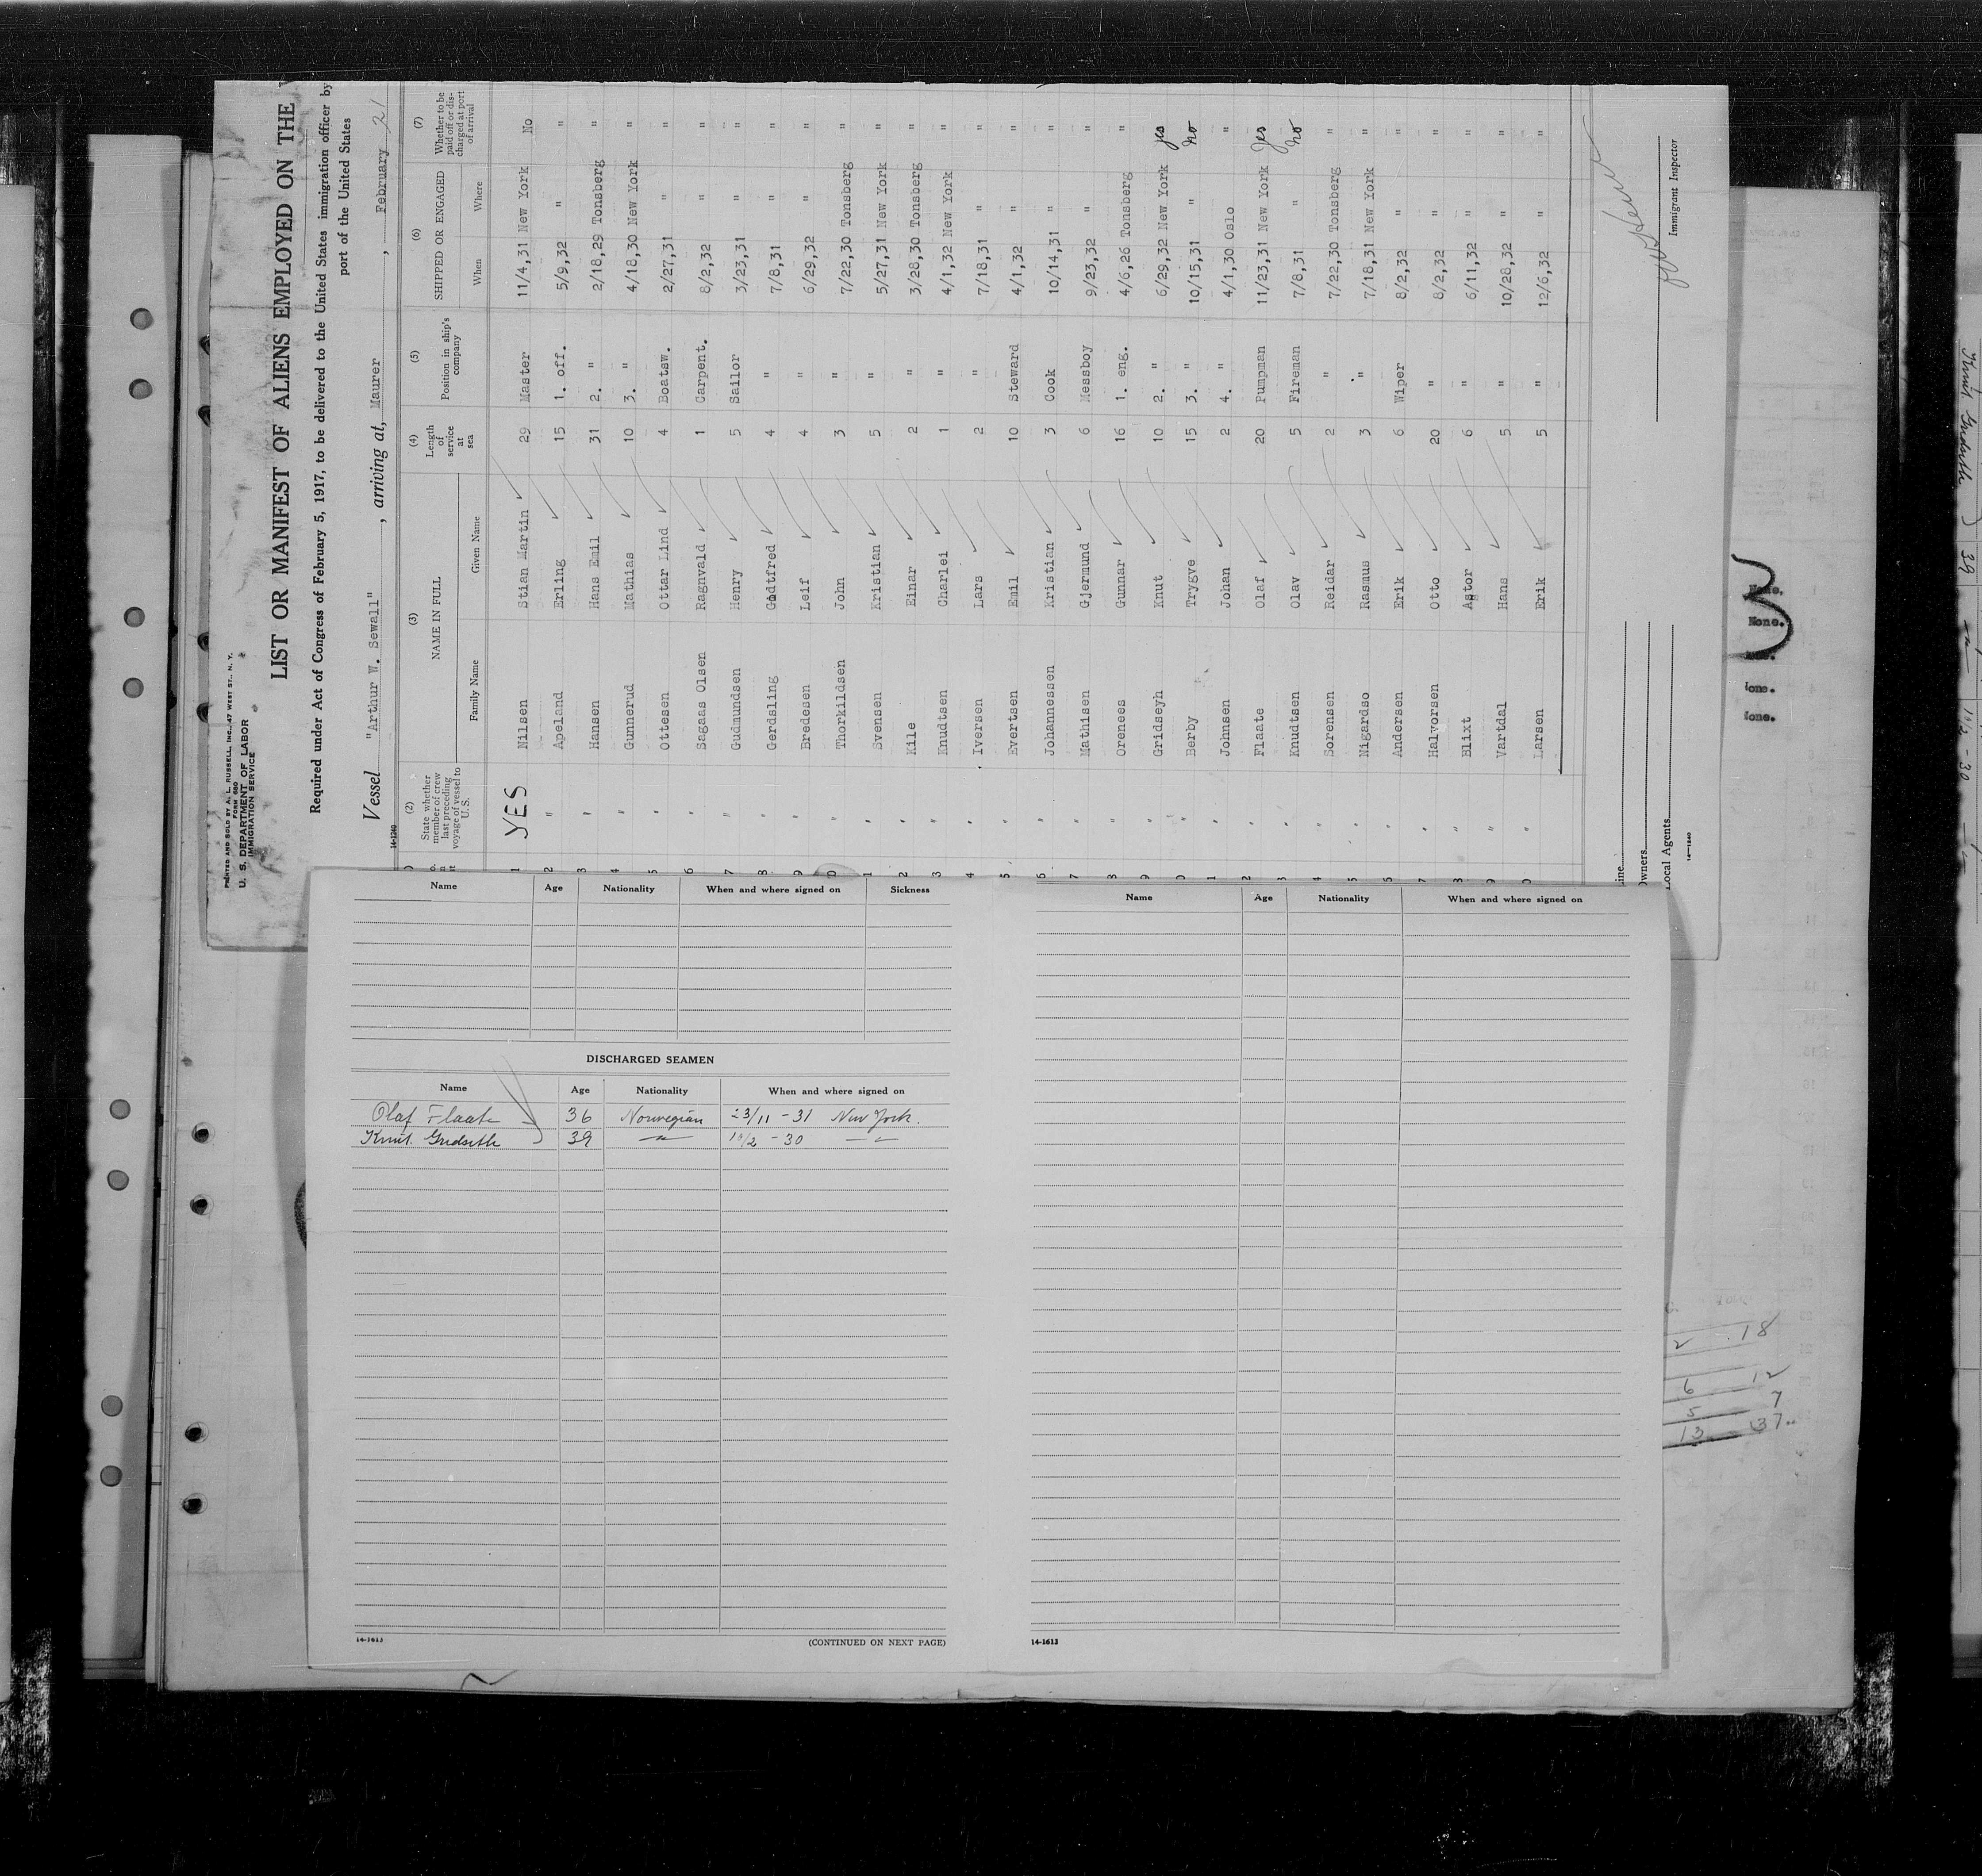 PRINTED AND SOLD BY A. L. RUSSELL, INC., 47 WEST ST., N. Y.
FORM 680
U. S. DEPARTMENT OF LABOR
IMMIGRATION SERVICE
LIST OR MANIFEST OF ALIENS EMPLOYED ON THE
Required under Act of Congress of February 5, 1917, to be delivered to the United States immigration officer by
port of the United States
Vessel "Arthur W. Sewall" , arriving at, Maurer , February 21
14-1240
(2) (3) (4) (5) (6) (7)
State whether member of crew last preceding voyage of vessel to U. S. NAME IN FULL Length of service at sea Position in ship's company SHIPPED OR ENGAGED Whether to be paid off or discharged at port of arrival
Family Name Given Name When Where
1 YES Nilsen Stian Martin 29 Master 11/4,31 New York No
2 " Apeland Erling 15 1. off. 5/9,32 " "
3 " Hansen Hans Emil 31 2. " 2/18,29 Tonsberg "
4 " Gunnerud Mathias 10 3. " 4/18,30 New York "
5 " Ottesen Ottar Lind 4 Boatsw. 2/27,31 " "
6 " Sagaas Olsen Ragnvald 1 Carpent. 8/2,32 " "
7 " Gudmundsen Henry 5 Sailor 3/23,31 " "
8 " Gerdsling Godtfred 4 " 7/8,31 " "
9 " Bredesen Leif 4 " 6/29,32 " "
0 " Thorkildsen John 3 " 7/22,30 Tonsberg "
1 " Svensen Kristian 5 " 5/27,31 New York "
2 " Kile Einar 2 " 3/28,30 Tonsberg "
3 " Knudtsen Charlei 1 " 4/1,32 New York "
4 " Iversen Lars 2 " 7/18,31 " "
5 " Evertsen Emil 10 Steward 4/1,32 " "
6 " Johannessen Kristian 3 Cook 10/14,31 " "
7 " Mathisen Gjermund 6 Messboy 9/23,32 " "
8 " Orenees Gunnar 16 1. eng. 4/6,26 Tonsberg "
9 " Gridseyh Knut 10 2. " 6/29,32 New York yes
0 " Berby Trygve 15 3. " 10/15,31 " no
1 " Johnsen Johan 2 4. " 4/1,30 Oslo "
2 " Flaate Olaf 20 Pumpman 11/23,31 New York Yes
3 " Knudtsen Olav 5 Fireman 7/8,31 " no
" Sorensen Reidar 2 " 7/22,30 Tonsberg "
5 " Nigardso Rasmus 3 " 7/18,31 New York "
6 " Andersen Erik 6 Wiper 8/2,32 " "
7 " Halvorsen Otto 20 " 8/2,32 " "
8 " Blixt Astor 6 " 6/11,32 " "
9 " Vartdal Hans 5 " 10/28,32 " "
0 " Larsen Erik 5 " 12/6,32 " "
Immigrant Inspector
Owners
Local Agents
14-1240
Name Age Nationality When and where signed on Sickness
DISCHARGED SEAMEN
Name Age Nationality When and where signed on
Olaf Flaate 36 Norwegian 23/11 - 31 New York.
Knut Gridseth 39 " 10/2 - 30 "
14-1613
(CONTINUED ON NEXT PAGE)
Name Age Nationality When and where signed on
14-1613
None.
None.
one.
one.
2 18
6 12
5 7
13 37
Knut Gridseth 39 10/2 - 30